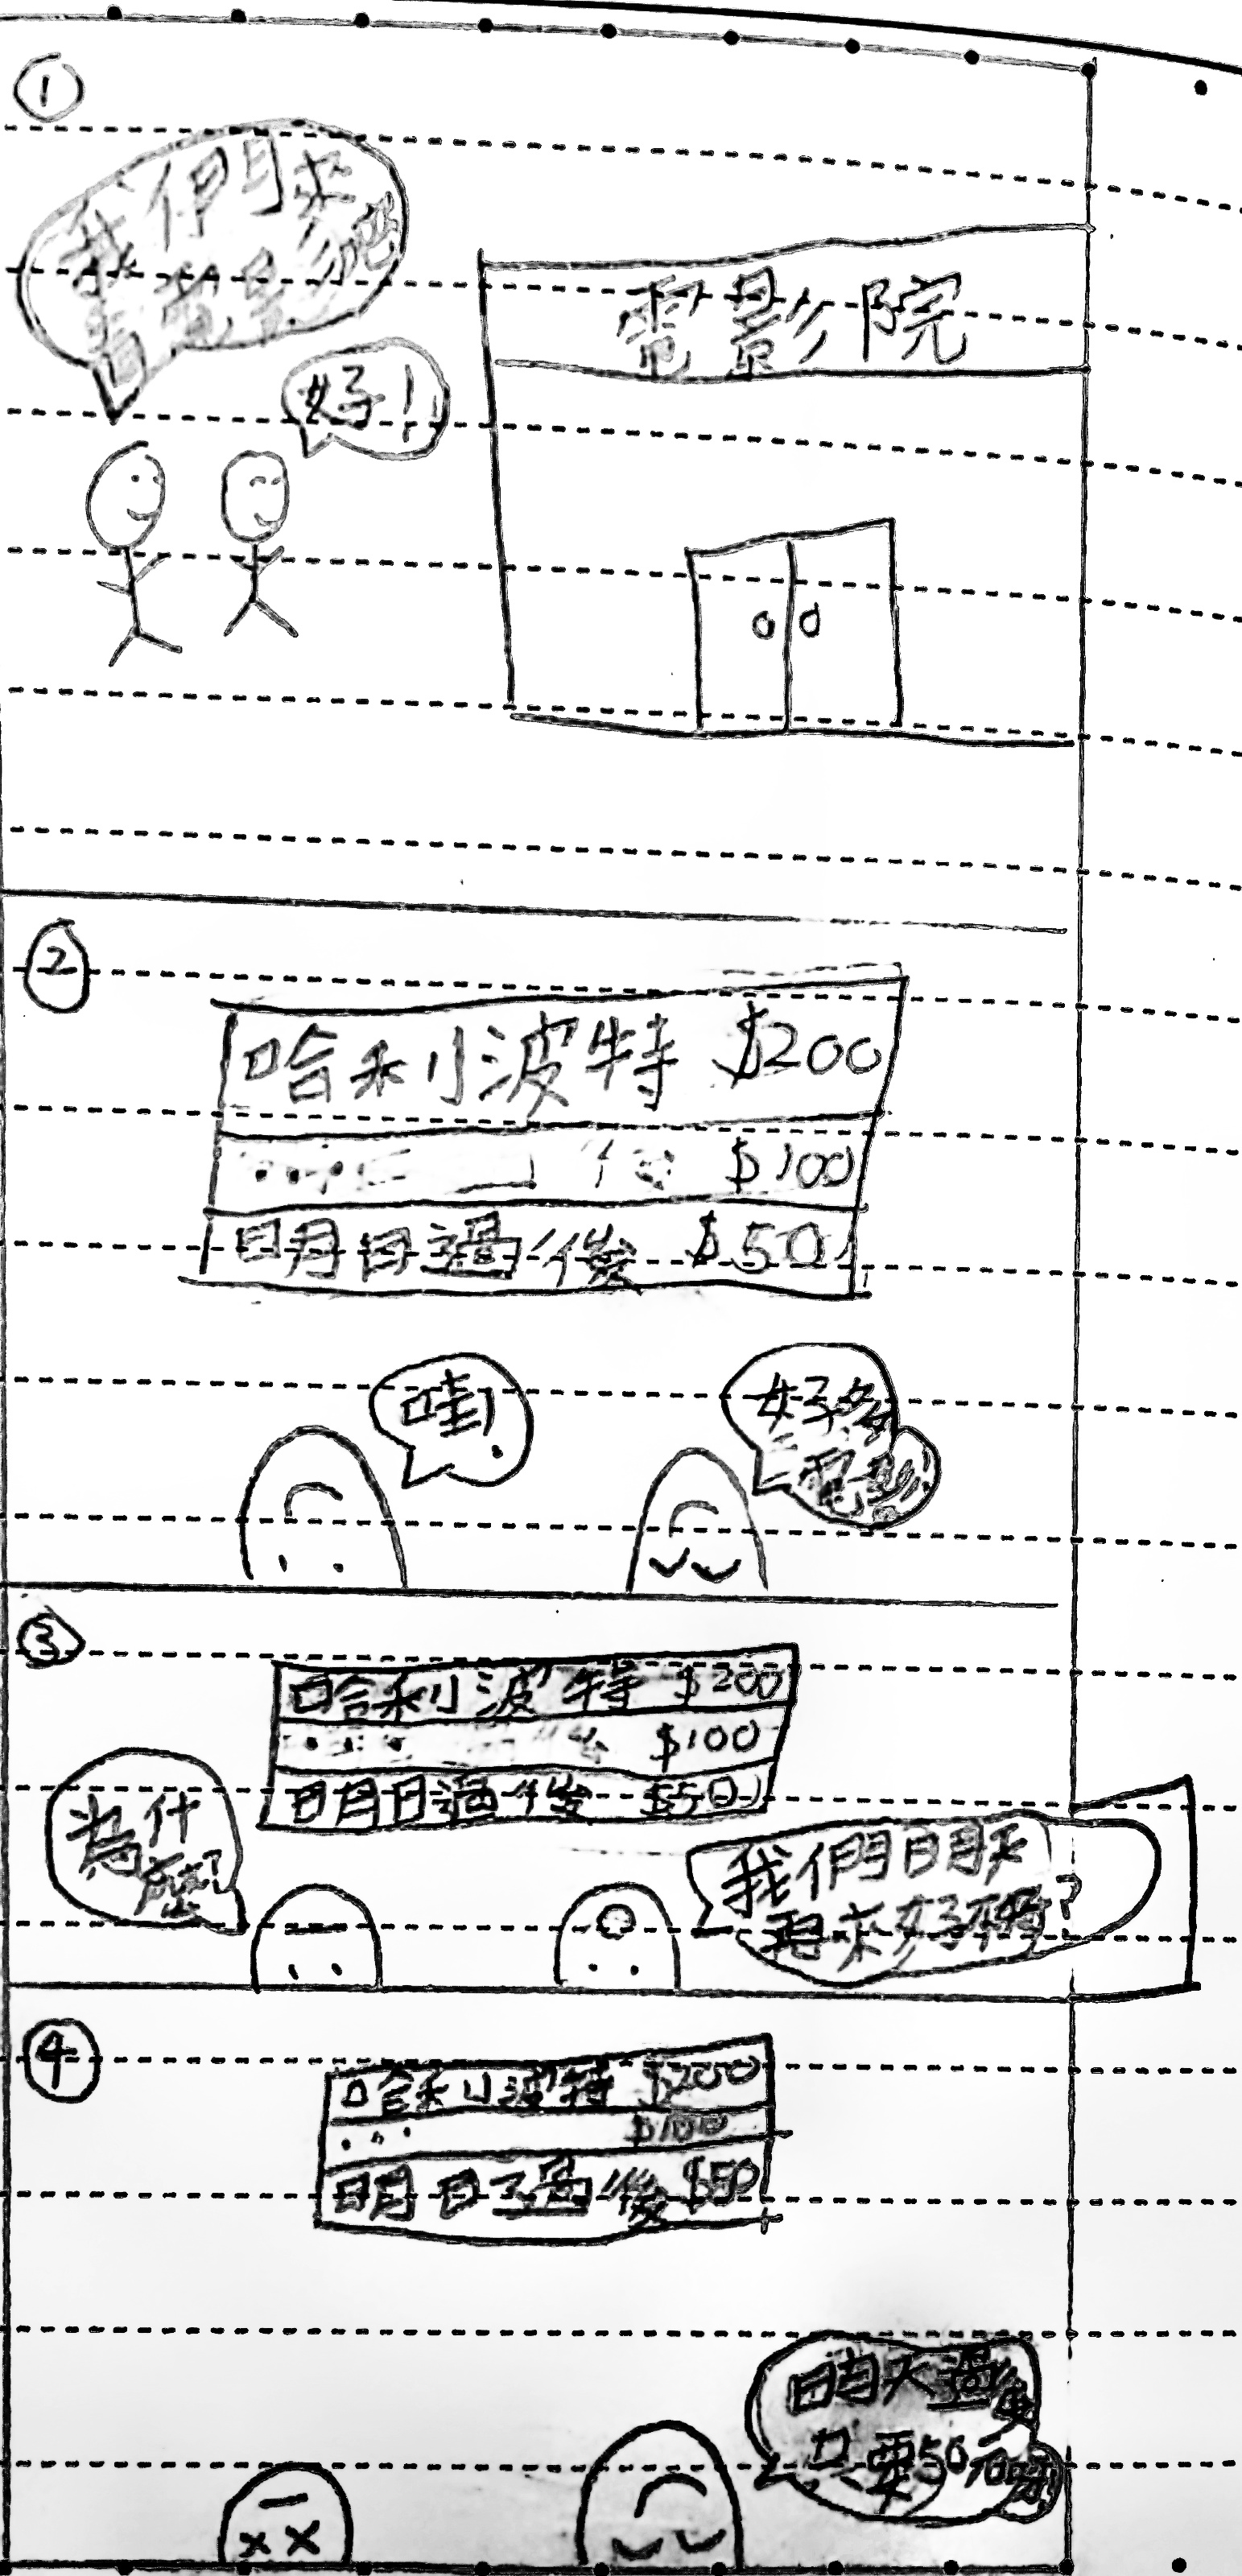 ①
我們來
看電影吧
好！
電影院
②
哈利波特 $200
... $100
明日過後 $50
哇！
好多
電影
③
哈利波特 $200
... $100
明日過後 $50
為什
麼？
我們明天
再來好不好？
④
哈利波特 $200
... $100
明日過後 $50
明天過後
只要50元